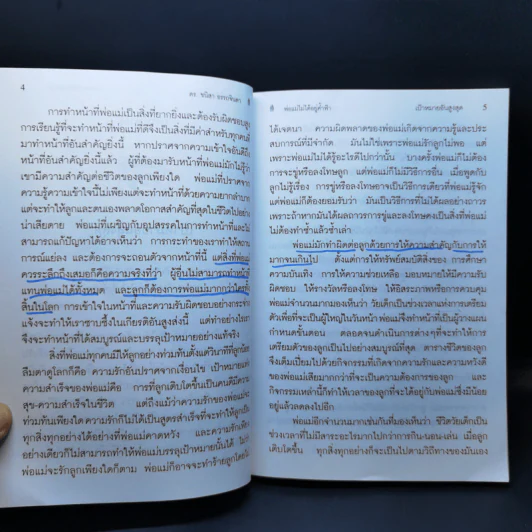 4
ดร. ชนิสา
การทำหน้าที่พ่อแม่เป็นสิ่งที่ยากยิ่งและต้องรับผิดชอบสูง
การเรียนรู้ที่จะทำหน้าที่พ่อแม่ที่ดีจึงเป็นสิ่งที่มีค่าสำหรับทุกคนที่
มาทำหน้าที่อันสำคัญยิ่งนี้ หากปราศจากความเข้าใจอันดีถึง
หน้าที่อันสำคัญยิ่งนี้แล้ว ผู้ที่ต้องมารับหน้าที่พ่อแม่มักไม่รู้ว่า
เขามีความสำคัญต่อชีวิตของลูกเพียงใด พ่อแม่ที่ปราศจาก
ความรู้ความเข้าใจนี้เพียงแต่จะทำหน้าที่ด้วยความยากลำบาก
แต่จะทำให้ลูกและตนเองพลาดโอกาสสำคัญที่สุดในชีวิตไปอย่าง
น่าเสียดาย พ่อแม่ที่เผชิญกับอุปสรรคในการทำหน้าที่และไม่
สามารถแก้ปัญหาได้อาจเห็นว่า การกระทำของเราทำให้สถาน
การณ์แย่ลง และต้องการจะถอนตัวจากหน้าที่นี้ แต่สิ่งที่พ่อแม่
ควรระลึกถึงเสมอก็คือความจริงที่ว่า ผู้อื่นไม่สามารถทำหน้าที่
แทนพ่อแม่ได้ทั้งหมด และลูกก็ต้องการพ่อแม่มากกว่าใครทั้ง
สิ้นในโลก การเข้าใจในหน้าที่และความรับผิดชอบอย่างกระจ่าง
แจ้งจะทำให้เราซาบซึ้งในเกียรติอันสูงส่งนี้ แต่ทำอย่างไรเรา
จึงจะทำหน้าที่นี้ได้สมบูรณ์และบรรลุเป้าหมายอย่างแท้จริง
สิ่งที่พ่อแม่ทุกคนมีให้ลูกอย่างท่วมท้นตั้งแต่วินาทีที่ลูกน้อย
ลืมตาดูโลกก็คือ ความรักอันปราศจากเงื่อนไข เป้าหมาย
แห่งความสำเร็จของพ่อแม่คือ การที่ลูกเติบโตขึ้นเป็นคนดีมีความ
สุข-ความสำเร็จในชีวิต แต่ถึงแม้ว่าความรักของพ่อแม่จะ
ท่วมท้นเพียงใด ความรักก็ไม่ได้เป็นสูตรสำเร็จที่จะทำให้ลูกเป็น
ทุกสิ่งทุกอย่างได้อย่างที่พ่อแม่คาดหวัง และความรักเพียง
อย่างเดียวก็ไม่สามารถทำให้พ่อแม่บรรลุเป้าหมายนั้นได้ ไม่ว่า
พ่อแม่จะรักลูกเพียงใดก็ตาม พ่อแม่ก็อาจจะทำร้ายลูกโดยไม่
พ่อแม่ไม่ได้อยู่ค้ำฟ้า
เป้าหมายอันสูงสุด 5
ได้เจตนา ความผิดพลาดของพ่อแม่เกิดจากความรู้และประ
สบการณ์ที่มีจำกัด มันไม่ใช่เพราะพ่อแม่รักลูกไม่พอ แต่
เพราะพ่อแม่ไม่ได้รู้อะไรดีไปกว่านั้น บางครั้งพ่อแม่ก็ไม่ต้อง
การจะขู่หรือลงโทษลูก แต่พ่อแม่ก็ไม่มีวิธีการอื่น เมื่อพูดกับ
ลูกไม่รู้เรื่อง การขู่หรือลงโทษอาจเป็นวิธีการเดียวที่พ่อแม่รู้จัก
แต่พ่อแม่ก็ต้องยอมรับว่า มันเป็นวิธีการที่ไม่ได้ผลอย่างถาวร
เพราะถ้าหากมันได้ผลถาวรการขู่และลงโทษคงเป็นสิ่งที่พ่อแม่
ไม่ต้องทำซ้ำแล้วซ้ำเล่า
พ่อแม่มักทำผิดต่อลูกด้วยการให้ความสำคัญกับการให้
มากจนเกินไป ตั้งแต่การให้ทรัพย์สมบัติสิ่งของ การศึกษา
ความบันเทิง การให้ความช่วยเหลือ มอบหมายให้มีความรับ
ผิดชอบ ให้รางวัลหรือลงโทษ ให้อิสระภาพหรือการควบคุม
พ่อแม่จำนวนมากมองเห็นว่า วัยเด็กเป็นช่วงเวลาแห่งการเตรียม
ตัวเพื่อที่จะเป็นผู้ใหญ่ในวันหน้า พ่อแม่จึงทำหน้าที่เป็นผู้วางแผน
กำหนดขั้นตอน ตลอดจนดำเนินการต่างๆที่จะทำให้การ
เตรียมตัวของลูกเป็นไปอย่างสมบูรณ์ที่สุด ตารางชีวิตของลูก
จึงเต็มเปี่ยมไปด้วยกิจกรรมที่เกิดจากความรักและความหวังดี
ของพ่อแม่เสียมากกว่าที่จะเป็นความต้องการของลูก และ
กิจกรรมเหล่านี้ก็ทำให้เวลาของลูกที่จะได้อยู่กับพ่อแม่ซึ่งมีน้อย
อยู่แล้วลดลงไปอีก
พ่อแม่อีกจำนวนมากเช่นกันที่มองเห็นว่า ชีวิตวัยเด็กเป็น
ช่วงเวลาที่ไม่มีสาระอะไรมากไปกว่าการกิน-นอน-เล่น เมื่อลูก
เติบโตขึ้น ทุกสิ่งทุกอย่างก็จะเป็นไปตามวิถีทางของมันเอง